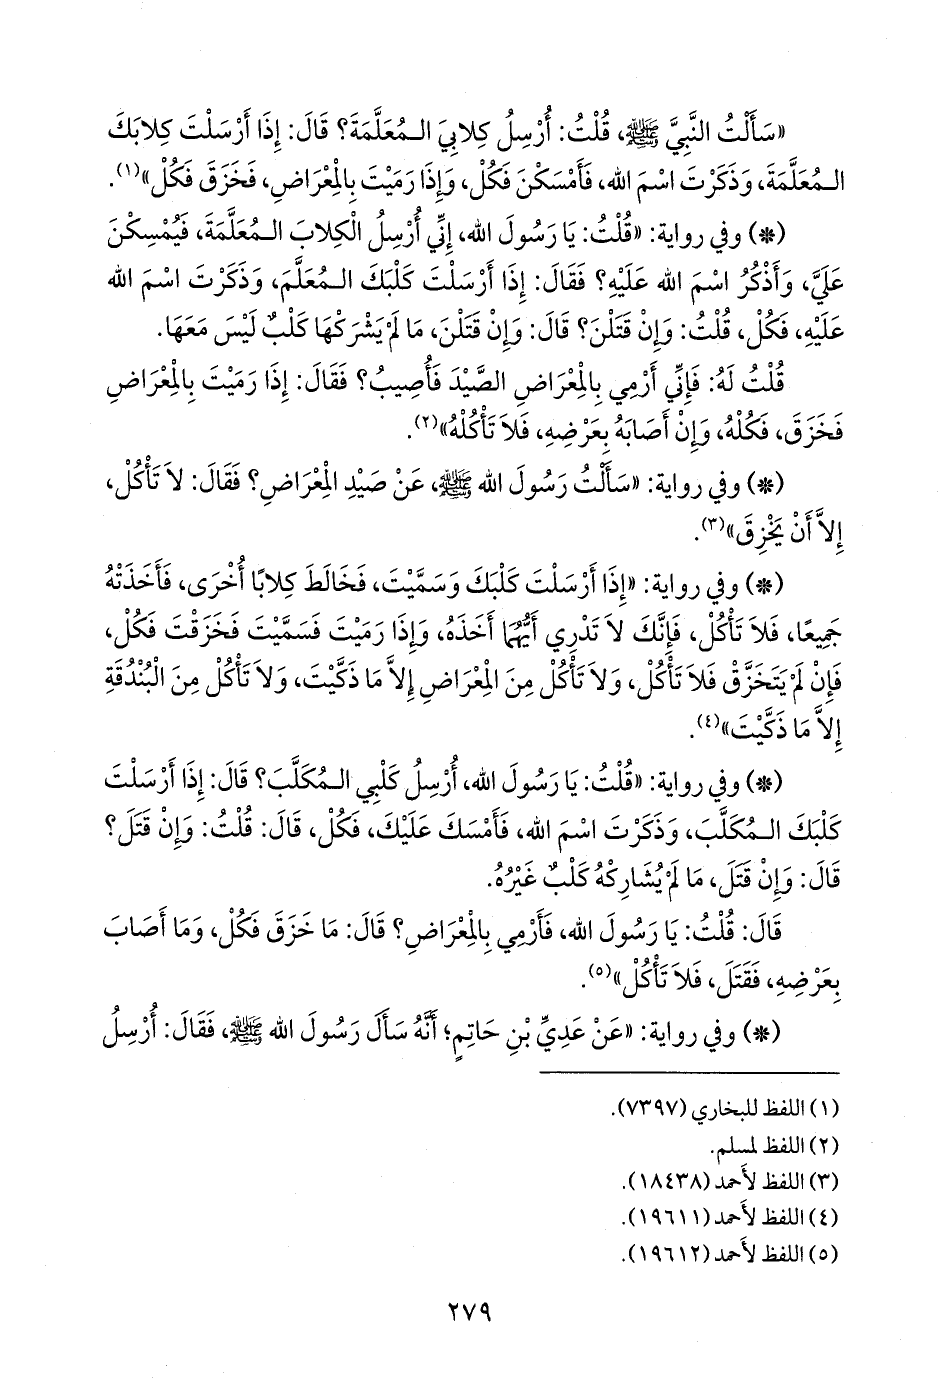 «سَأَلْتُ النَّبِيَّ ﷺ، قُلْتُ: أُرْسِلُ كِلَابِيَ الـمُعَلَّمَةَ؟ قَالَ: إِذَا أَرْسَلْتَ كِلَابَكَ
الـمُعَلَّمَةَ، وَذَكَرْتَ اسْمَ الله، فَأَمْسَكْنَ فَكُلْ، وَإِذَا رَمَيْتَ بِالْمِعْرَاضِ، فَخَزَقَ فَكُلْ»(١).
(*) وفي رواية: «قُلْتُ: يَا رَسُولَ الله، إِنِّي أُرْسِلُ الْكِلَابَ الـمُعَلَّمَةَ، فَيُمْسِكْنَ
عَلَيَّ، وَأَذْكُرُ اسْمَ الله عَلَيْهِ؟ فَقَالَ: إِذَا أَرْسَلْتَ كَلْبَكَ الـمُعَلَّمَ، وَذَكَرْتَ اسْمَ الله
عَلَيْهِ، فَكُلْ، قُلْتُ: وَإِنْ قَتَلْنَ؟ قَالَ: وَإِنْ قَتَلْنَ، مَا لَمْ يَشْرَكْهَا كَلْبٌ لَيْسَ مَعَهَا.
قُلْتُ لَهُ: فَإِنِّي أَرْمِي بِالْمِعْرَاضِ الصَّيْدَ فَأُصِيبُ؟ فَقَالَ: إِذَا رَمَيْتَ بِالْمِعْرَاضِ
فَخَزَقَ، فَكُلْهُ، وَإِنْ أَصَابَهُ بِعَرْضِهِ، فَلَا تَأْكُلْهُ»(٢).
(*) وفي رواية: «سَأَلْتُ رَسُولَ الله ﷺ، عَنْ صَيْدِ الْمِعْرَاضِ؟ فَقَالَ: لَا تَأْكُلْ،
إِلَّا أَنْ يَخْزِقَ»(٣).
(*) وفي رواية: «إِذَا أَرْسَلْتَ كَلْبَكَ وَسَمَّيْتَ، فَخَالَطَ كِلَابًا أُخْرَى، فَأَخَذَتْهُ
جَمِيعًا، فَلَا تَأْكُلْ، فَإِنَّكَ لَا تَدْرِي أَيُّهُمَا أَخَذَهُ، وَإِذَا رَمَيْتَ فَسَمَّيْتَ فَخَزَقْتَ فَكُلْ،
فَإِنْ لَمْ يَتَخَزَّقْ فَلَا تَأْكُلْ، وَلَا تَأْكُلْ مِنَ الْمِعْرَاضِ إِلَّا مَا ذَكَّيْتَ، وَلَا تَأْكُلْ مِنَ الْبُنْدُقَةِ
إِلَّا مَا ذَكَّيْتَ»(٤).
(*) وفي رواية: «قُلْتُ: يَا رَسُولَ الله، أُرْسِلُ كَلْبِي الـمُكَلَّبَ؟ قَالَ: إِذَا أَرْسَلْتَ
كَلْبَكَ الـمُكَلَّبَ، وَذَكَرْتَ اسْمَ الله، فَأَمْسَكَ عَلَيْكَ، فَكُلْ، قَالَ: قُلْتُ: وَإِنْ قَتَلَ؟
قَالَ: وَإِنْ قَتَلَ، مَا لَمْ يُشَارِكْهُ كَلْبٌ غَيْرُهُ.
قَالَ: قُلْتُ: يَا رَسُولَ الله، فَأَرْمِي بِالْمِعْرَاضِ؟ قَالَ: مَا خَزَقَ فَكُلْ، وَمَا أَصَابَ
بِعَرْضِهِ، فَقَتَلَ، فَلَا تَأْكُلْ»(٥).
(*) وفي رواية: «عَنْ عَدِيِّ بْنِ حَاتِمٍ؛ أَنَّهُ سَأَلَ رَسُولَ الله ﷺ، فَقَالَ: أُرْسِلُ
(١) اللفظ للبخاري (٧٣٩٧).
(٢) اللفظ لمسلم.
(٣) اللفظ لأحمد (١٨٤٣٨).
(٤) اللفظ لأحمد (١٩٦١١).
(٥) اللفظ لأحمد (١٩٦١٢).
٢٧٩